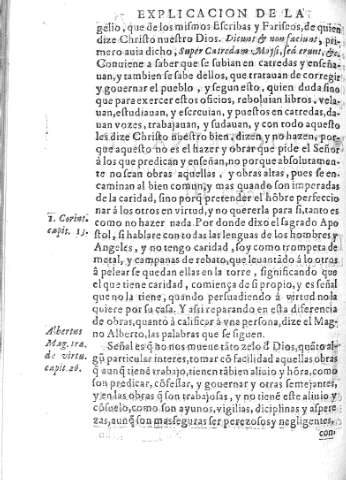 EXPLICACION DE LA
gelio, que de los mismos Escribas y Fariseos, de quien
dize Christo nuestro Dios. Dicunt & non faciunt, pri-
mero auia dicho, Super Catredam Moysi, sed erunt, &c.
Conuiene a saber que se subian en catredas y enseña-
uan, y tambien se sabe dellos, que tratauan de corregir
y gouernar el pueblo, y segun esto, quien duda sino
que para exercer estos oficios, reboluian libros, vela-
uan, estudiauan, y escreuian, y puestos en catredas, da-
uan vozes, trabajauan, y sudauan, y con todo aquesto
les dize Christo nuestro bien, dizen y no hazen, por-
que aquesto no es el hazer y obrar que pide el Señor
à los que predican y enseñan, no porque absolutamen-
te no sean obras aquellas, y obras altas, pues se en-
caminan al bien comun, y mas quando son imperadas
de la caridad, sino porq̃ pretender el hõbre perfeccio
nar à los otros en virtud, y no quererla para si, tanto es
como no hazer nada. Por donde dixo el sagrado Apo
stol, si hablare con todas las lenguas de los hombres y
Angeles, y no tengo caridad, soy como trompeta de
metal, y campanas de rebato, que leuantãdo à los otros
à pelear se quedan ellas en la torre, significando que
el que tiene caridad, comiença de si propio, y es señal
que no la tiene, quando persuadiendo à virtud no la
quiere por su casa. Y assi reparando en esta diferencia
de obras, quantò à calificar à vna persona, dize el Mag-
no Alberto, las palabras que se siguen.
Señal es q̃ no nos mueue tãto zelo d̃ Dios, quãto al-
gũ particular interes, tomar cõ facilidad aquellas obras
q̃ aunq̃ tiene trabajo, tienen tãbien aliuio y hõra, como
son predicar, cõfessar, y gouernar y otras semejantes,
y en las obras q̃ son trabajosas, y no tiene este aliuio y
cõsuelo, como son ayunos, vigilias, diciplinas y aspere
zas, aunq̃ son mas seguras ser perezosos y negligentes,
con-
1. Corint.
capit. 13.
Albertus
Mag. tra.
de virtu.
capit. 26.